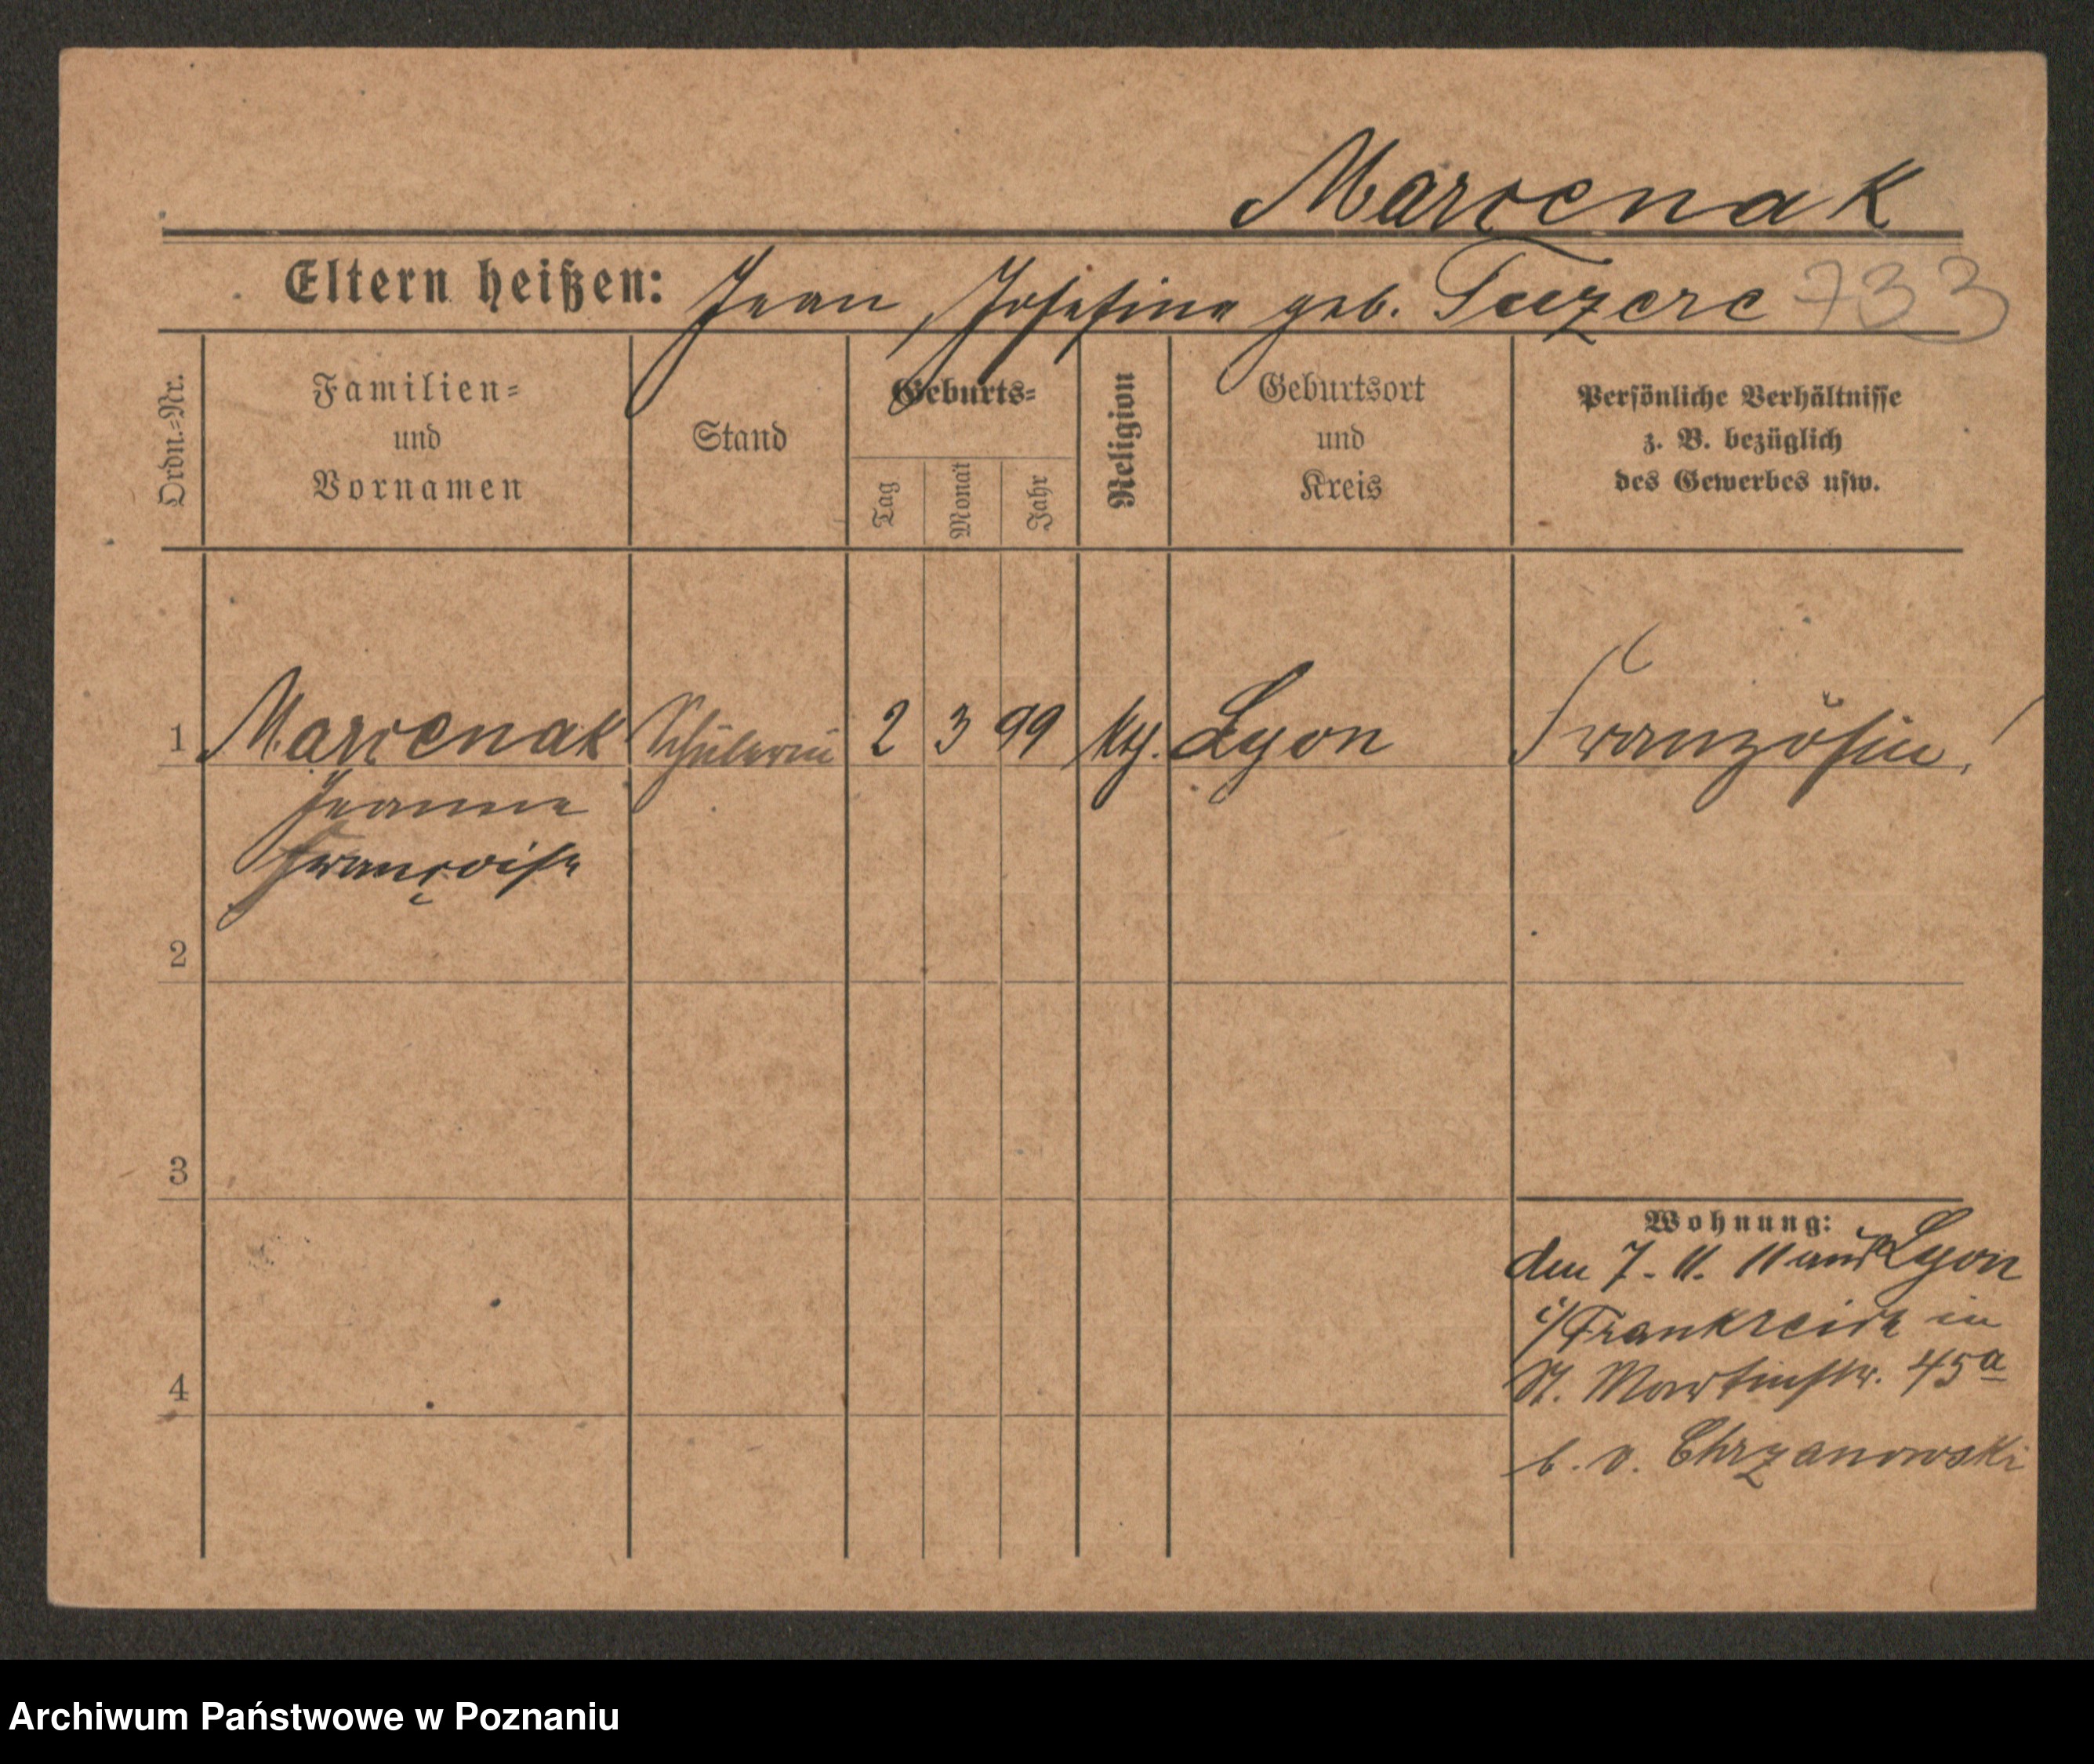 Marcenak
Eltern heißen: Jean, Josefine geb. Tuzere 733
Ordn.-Nr.
Familien-
und
Vornamen
Stand
Geburts-
Tag
Monat
Jahr
Religion
Geburtsort
und
Kreis
Persönliche Verhältnisse
z. B. bezüglich
des Gewerbes usw.
1 Marcenak Schülerin 2 3 99 kth. Lyon Französin!
Jeanne
Françoise
2
3
Wohnung:
den 7. 11. 11 aus Lyon
i/Frankreich in
4
St. Martinstr. 45a
b. v. Chrzanowski
Archiwum Państwowe w Poznaniu